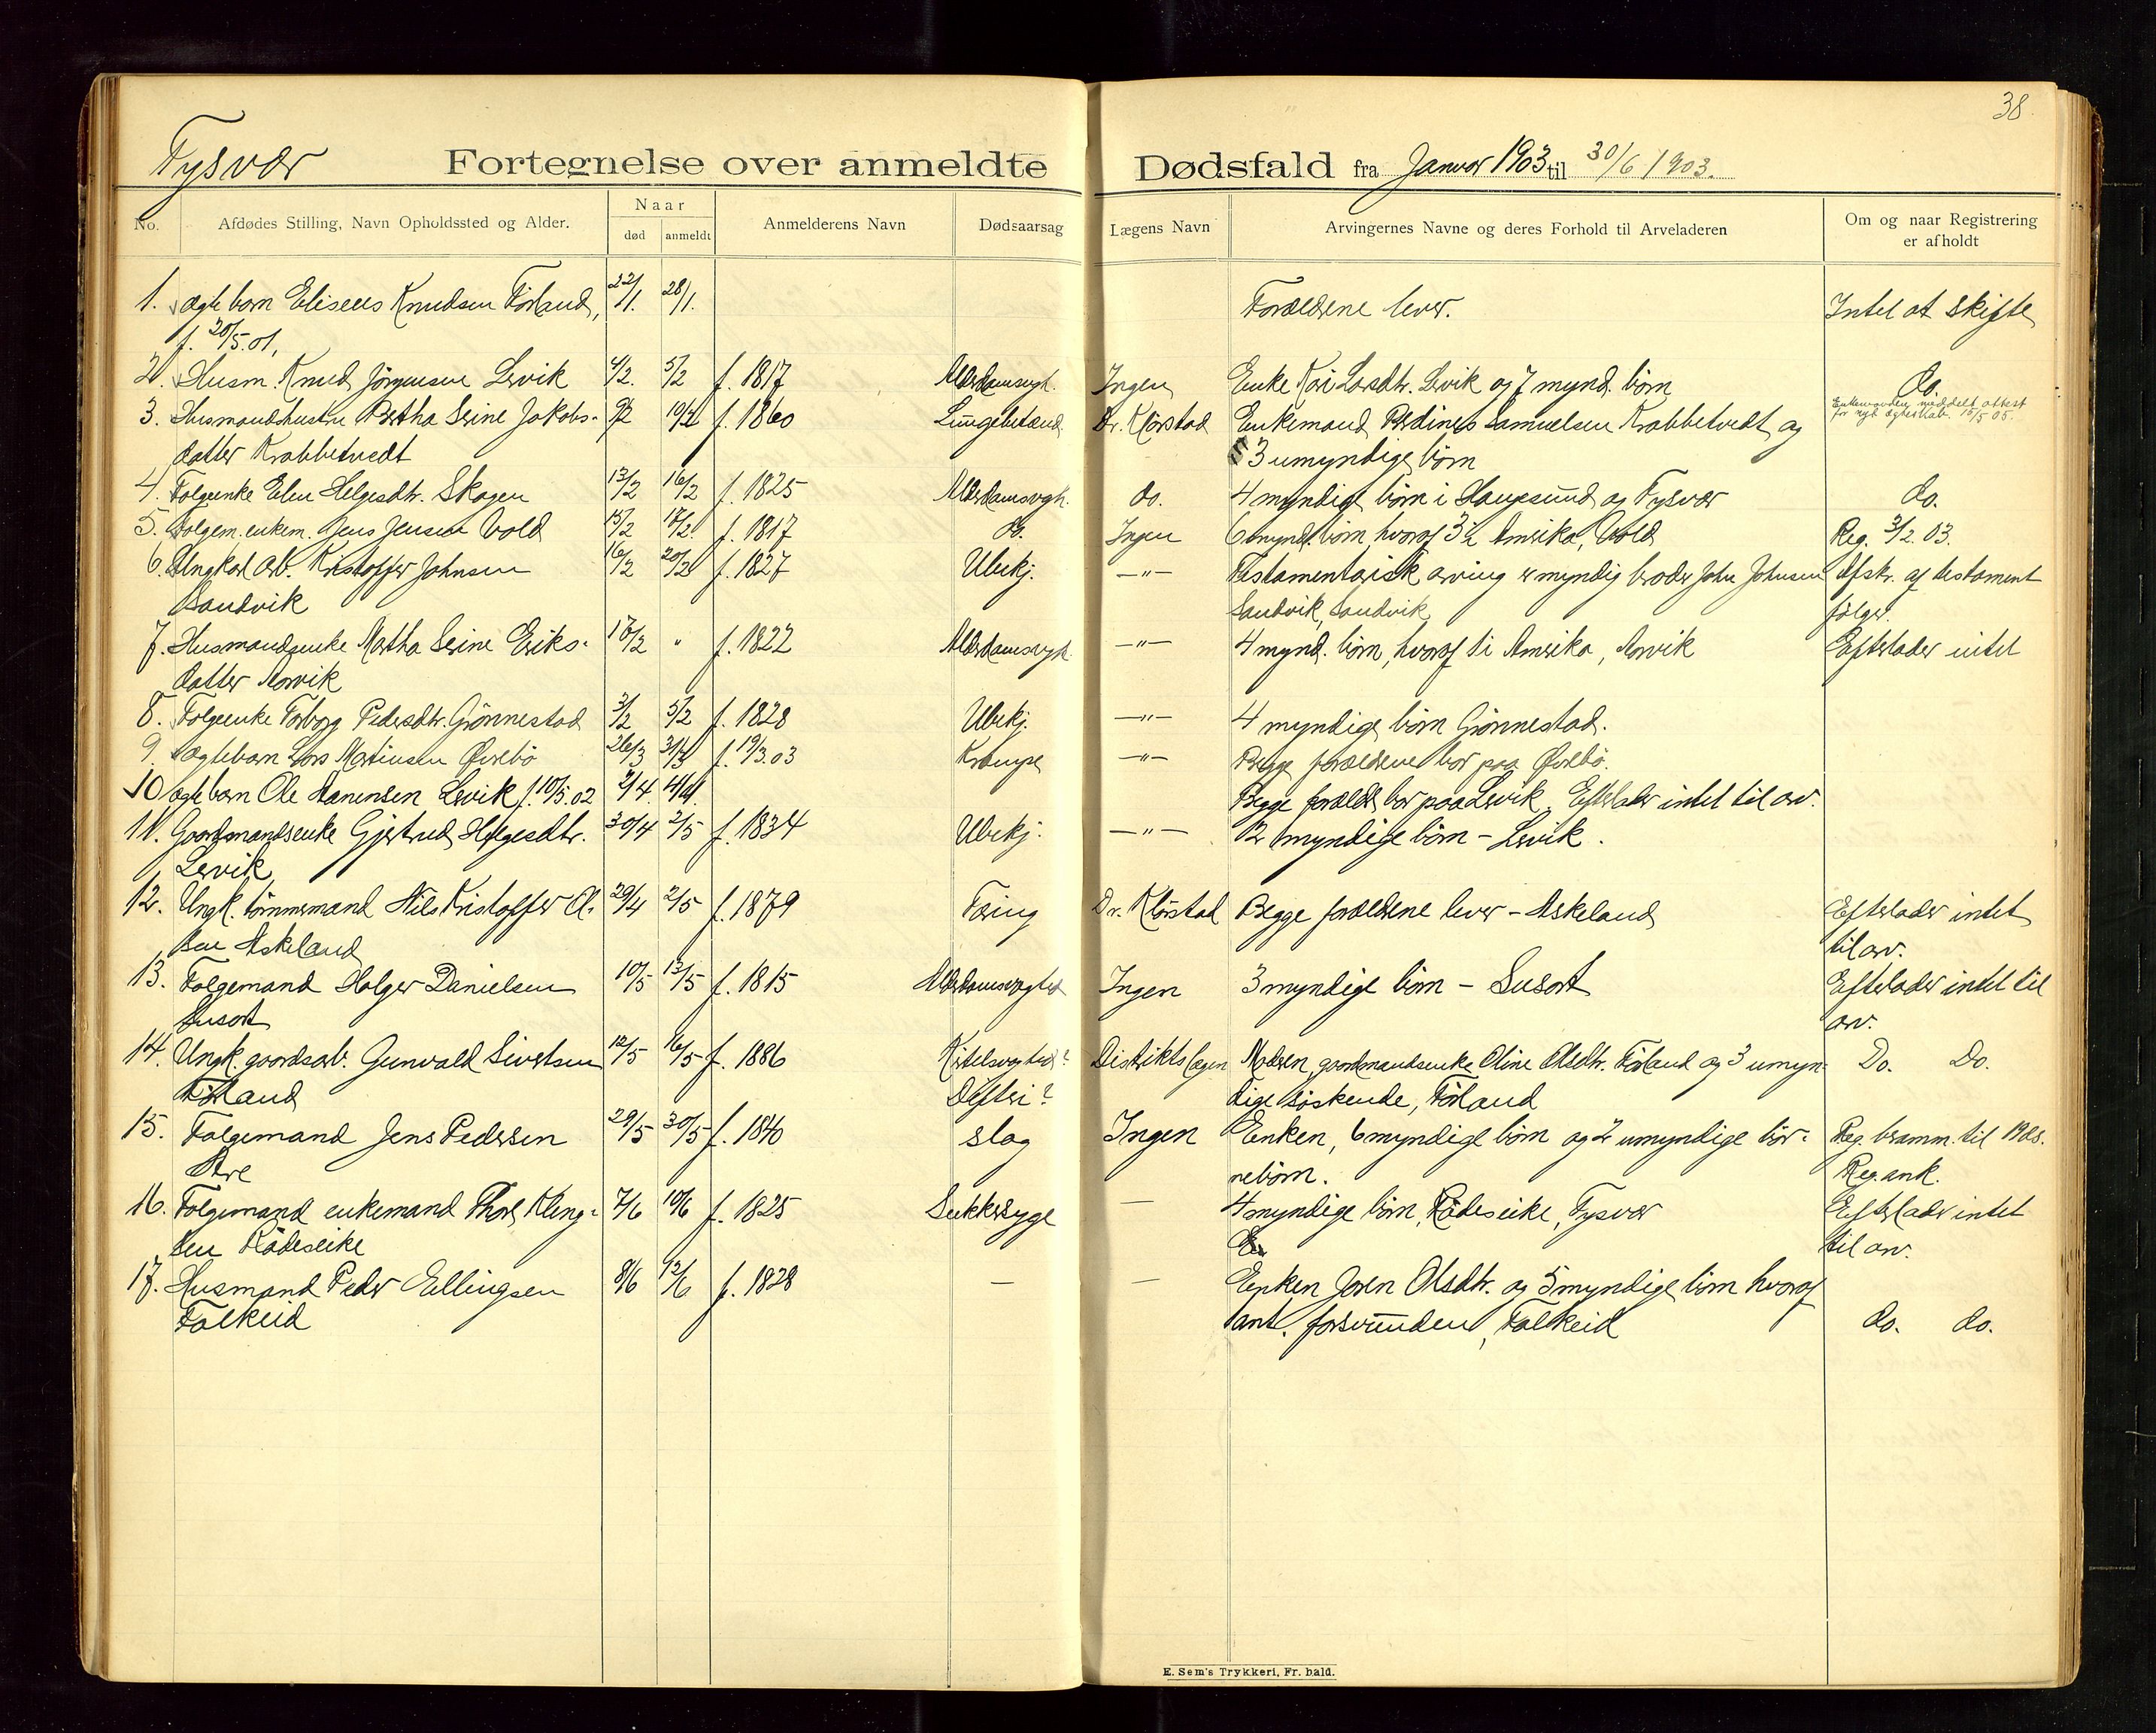 38.
Tysvær
Fortegnelse over anmeldte Dødsfald fra Januar 1903 til 30/6 1903.
No.
Afdødes Stilling, Navn Opholdssted og Alder.
Naar
død
anmeldt
Anmelderens Navn
Dødsaarsag
Lægens Navn
Arvingernes Navne og deres Forhold til Arveladeren
Om og naar Registrering
er afholdt
1. Ægte barn Eliseus Knudsen Førland, 22/1. 28/1. Forældrene lever. Intet at skifte
f. 20/5.01,
2. Husm. Knud Jørgensen Lervik 4/2. 5/2 f. 1817 Alderdomsvgh. Ingen Enke Kari Larsdtr. Lervik og 7 mynd. børn do.
3. Husmandshustru Bertha Serine Jakobs- 9/2 19/2 f. 1860 Lungebetænd. Dr. Klørstad Enkemand Perdines Samuelsen Krabbetvedt og
Enkemanden meddelt attest
for nyt ægteskab. 15/5 05.
datter Krabbetvedt 3 umyndige børn
4. Folgeenke Elen Helgesdtr. Skogen 13/2 16/2 f. 1825 Alderdomsvgh. do. 4 myndige børn i Haugesund og Tysvær do.
5. Folgem. enkem. Jens Jensen Vold 15/2 17/2 f. 1817 do. Ingen 6 mynd. børn hvoraf 3 i Amerika, Vold Reg. 3/2 03.
6. Ungkarl arb. Kristoffer Johnsen 16/2 20/2 f. 1827 Ubekj. —"— Testamentarisk arving er myndig broder John Johnsen Afskr. af testament
Sandvik Sandvik, Sandvik følger.
7. Husmandsenke Martha Serine Eriks- 18/2 " f. 1822 Alderdomsvgh. —"— 4 mynd. børn, hvoraf 1 i Amerika, Arvik Efterlader intet
datter Arvik
8. Folgeenke Torborg Pedersdtr. Grønnestad 3/2 5/2 f. 1828 Ubekj. —"— 4 myndige børn Grønnestad.
9. Ægtebarn Lars Martinsen Øvrebø 26/3 31/3 f. 19/3.03 Krampe —"— Begge forældrene bor paa Øvrebø.
10 ægte barn Ole Hanensen Lervik f. 10/5.02 2/4. 14/4. Begge forældr bor paa Lervik. Efterlader intet til arv.
11. Gaardmandsenke Gjertrud Helgesdtr. 30/4 2/5 f. 1834 Ubekj. —"— 2 myndige børn – Lervik.
Lervik
12. Ungk. tømmermand Nils Kristoffer Ol- 29/4 2/5 f. 1879 Tæring Dr. Klørstad Begge forældrene lever – Askeland Efterlader intet
sen Askeland til arv.
13. Folgemand Holger Danielsen 10/5 13/5 f. 1815 Alderdomsvaghed Ingen 3 myndige børn – Susort Efterlader intet til
Susort arv.
14. Ungk. gaardsarb. Gunvald Sivertsen 12/5 16/5 f. 1886 Distriktslægen Moderen, gaardmandsenke Oline Olsdtr. Førland og 3 umyn- Do. Do.
Førland Difteri? dige søskende, Førland
15. Folgemand Jens Pedersen 29/5 30/5 f. 1840 slag Ingen Enken, 6 myndige børn og 2 umyndige bør- Reg. beramm. til 1905.
nebørn. Reg. ank.
16. Folgemand enkemand Thore Kleng- 7/6 10/6 f. 1825 Sukkersyge — 4 myndige børn, Rådeseike, Tysvær Efterlader intet
sen Rådeseike til arv.
17. Husmand Peder Ellingsen 8/6 12/6 f. 1828 — — Enken Joren Olsdtr. og 5 myndige børn hvoraf
Falkeid 1 ant. forsvunden, Falkeid do. do.
E. Sem's Trykkeri, Fr. hald.